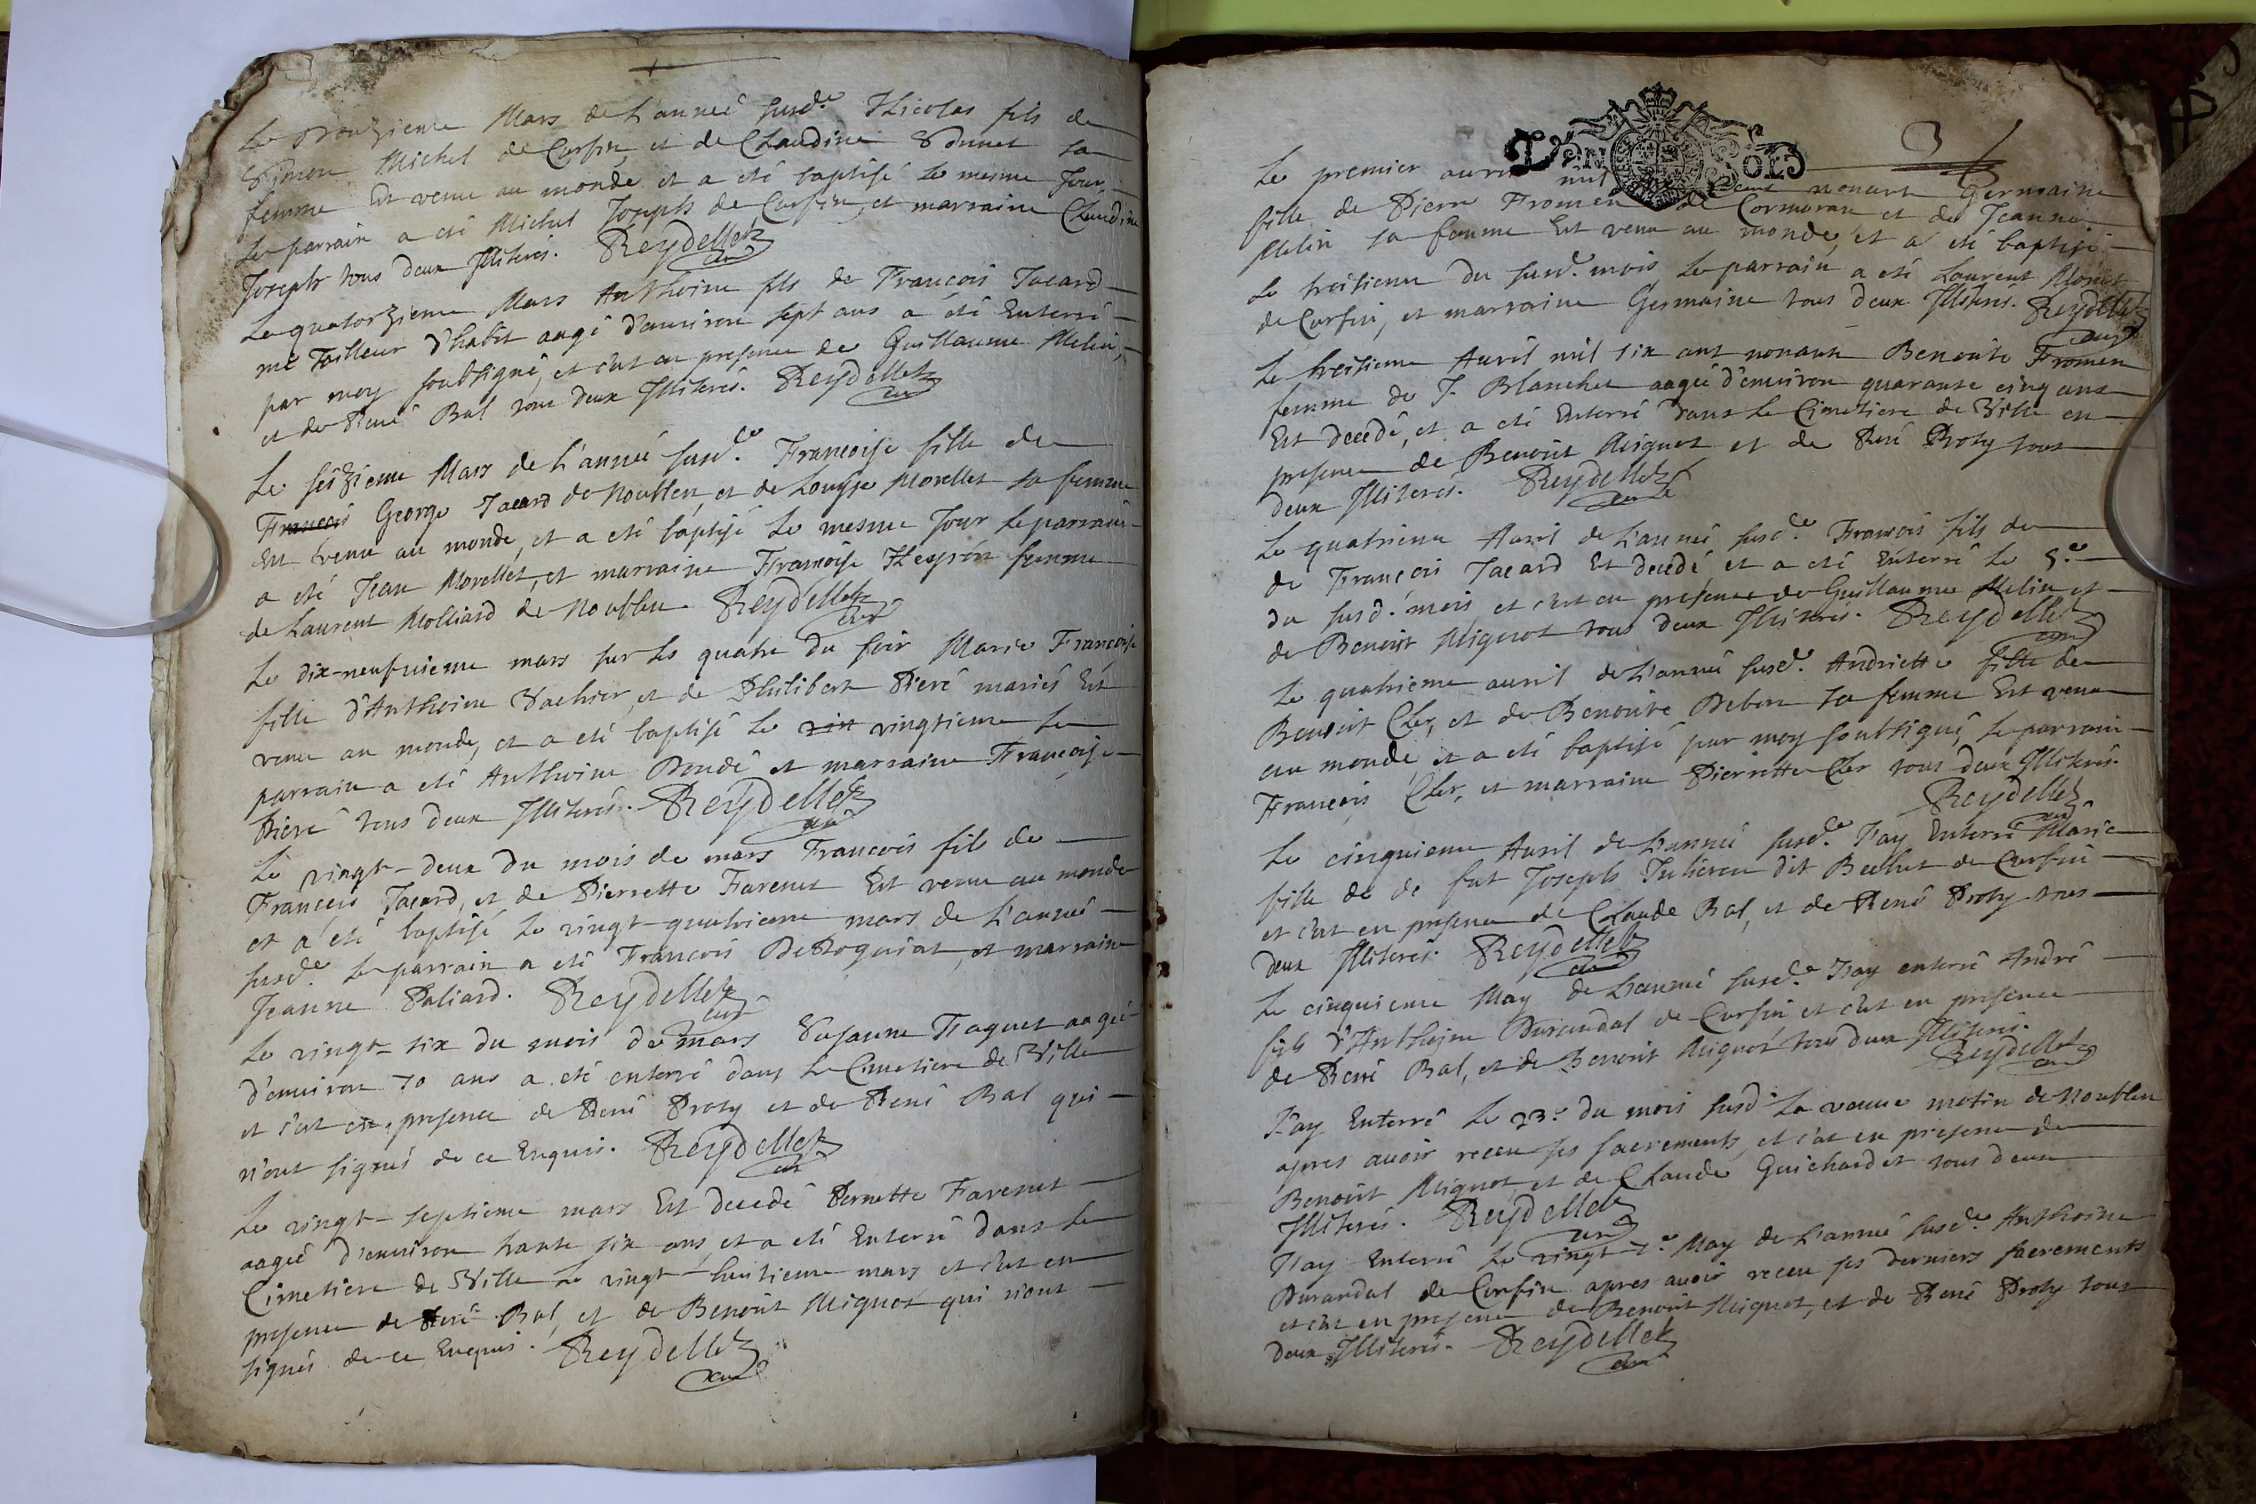 Le douzieme Mars de L'année susd.e Nicolas fils de
Simon Michel de Corfin, et de Claudine Donnet sa
femme Est venu au monde et a eté baptisé le mesme Jour,
Le parrain a eté Michel Joseph de Corfin, et marraine Claudine
Joseph tous deux Illiterés. Reydellet curé
Le quatorzieme Mars Anthoine fils de François Jacard
me Tailleur d'habit aagé d'environ sept ans a été Enterré
par moy soubsigné, et c'est en presence de Guillaume Melin,
et de René Bal tous deux Illiterés. Reydellet curé
Le séizieme Mars de L'année susd.e Françoise fille de
François George Jacard de Noublen, et de Louyse Morellet sa femme
Est venu au monde, et a eté baptisé Le mesme Jour le parrain
a eté Jean Morellet, et marraine Françoise femme
de Laurent Molliard de Noublen Reydellet curé
Le dix-neufuieme mars sur les quatre du soir Marie Françoise
fille d'Anthoine Vachier, et de Philibert Pieré mariés Est
venu au monde, et a eté baptisé le vin vingtieme le
parrain a eté Anthoine Dondé et marraine Françoise
Pieré tous deux Illiterés. Reydellet curé
Le vingt-deux du mois de mars François fils de
François Jacard, et de Pierrette Favenet Est venu au monde
et a eté baptisé Le vingt-quatrieme mars de L'année
susd.e Le parrain a eté François, et marraine
Jeanne Paliard. Reydellet curé
Le vingt-six du mois de mars Susanne aagée
d'environ 70 ans a eté enterré dans Le Cimetiere de Ville
et c'est en presence de René Proty et de René Bal qui
n'ont signés de ce Enquis. Reydellet curé
Le vingt-septieme mars Est decedé Pernette Favenet
aagée d'environ trante six ans, et a eté Enterré dans Le
Cimetiere de Ville Le vingt-huitieme mars et c'est en
presence de René Bal, et de Benoit Mignot qui n'ont
signés de ce Enquis. Reydellet curé
3
Le premier avril mil cent nonant Germaine
fille de Pierre Fromen de Cormoran et de Jeanne
Melin sa femme Est venu au monde, et a eté baptisé
Le troisieme du susd.e mois Le parrain a eté Laurent
de Corfin, et marraine Germaine tous deux Illiterés. Reydellet curé
Le troisieme Avril mil six cent nonante Benoite Fromen
femme de J. Blanchet aagée d'environ quarante cinq ans
Est decedé, et a eté Enterré dans Le Cimetiere de Ville en
presence de Benoit Mignot et de René Proty tous
deux Illiterés. Reydellet curé
Le quatrieme Avril de L'année susd.e François fils de
de François Jacard Est decedé et a eté Enterré le 5.e
du susd.e mois, et c'est en presence de Guillaume Melin et
de Benoit Mignot tous deux Illiterés. Reydellet curé
Le quatrieme avril de L'année susd.e Andriette fille de
Benoit Cler, et de Benoite Debon sa femme Est venu
au monde et a eté baptisé par moy soubsigné, le parrain
François Cler, et marraine Pierrette Cler tous deux Illiterés.
Reydellet curé
Le cinquieme Avril de L'année susd.e J'ay Enterré Marie
fille de de fut Joseph dit Bechet de Corfin
et c'est en presence de Claude Bal, et de René Proty tous
deux Illiterés. Reydellet curé
Le cinquieme May de L'année susd.e J'ay enterré André
fils d'Anthoine Durandal de Corfin et c'est en presence
de René Bal, et de Benoit Mignot tous deux Illiterés.
Reydellet curé
J'ay Enterré Le 23.e du mois susd.e La veuve motin de Noublen
apres avoir receu ses sacrements, et c'est en presence de
Benoit Mignot et de Claude Guichardet tous deux
Illiterés. Reydellet curé
J'ay Enterré Le vingt 7.e May de L'année susd.e Anthoine
Durandal de Corfin apres avoir receu ses derniers sacrements
et c'est en presence de Benoit Mignot, et de René Proty tous
deux Illiterés. Reydellet curé